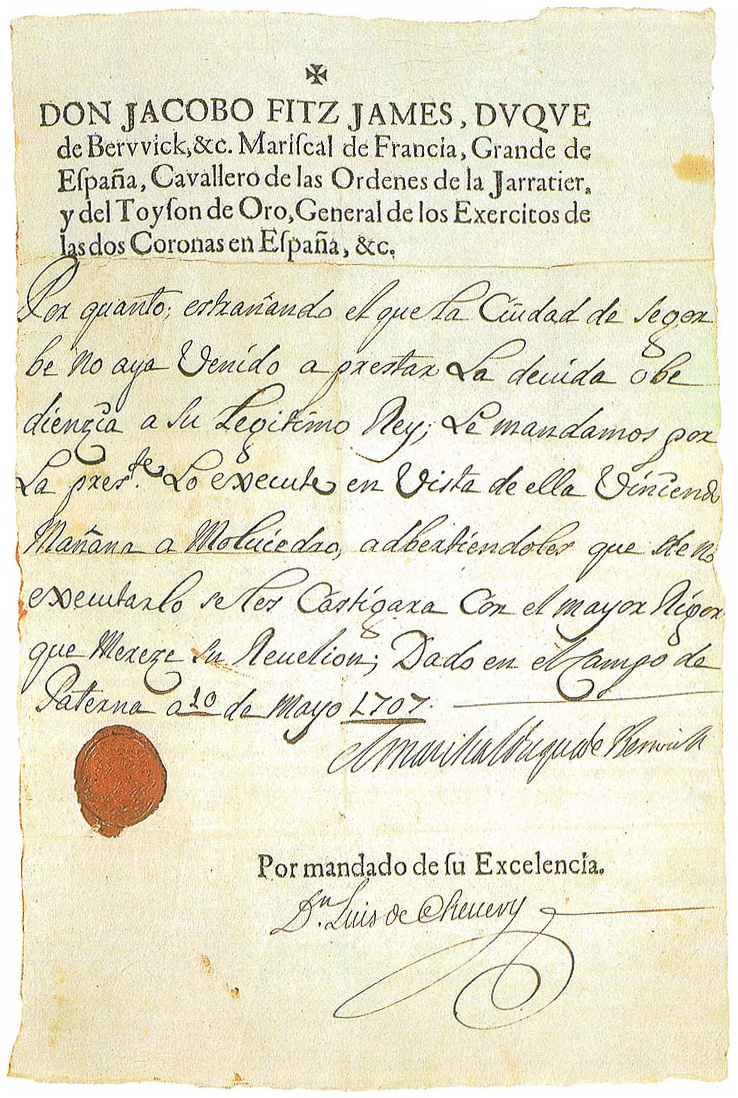 ✠
DON JACOBO FITZ JAMES, DVQVE
de Bervvick, &c. Mariſcal de Francia, Grande de
Eſpaña, Cavallero de las Ordenes de la Jarratier,
y del Toyſon de Oro, General de los Exercitos de
las dos Coronas en Eſpaña, &c.
Por quanto; estrañando el que la Ciudad de Segor
be no aya Venido a prestar La deuida obe
dienzia a Su Legitimo Rey; Le mandamos por
La pres.te Lo execute en Vista de ella Viniendo
Mañana a Moluiedro, adbertiendoles que de no
executarlo se les Castigara Con el mayor Rigor
que Mereze Su Reuelion; Dado en el Campo de
Paterna a 10 de Mayo 1707.
el Marischal Duque de Berwick
Por mandado de ſu Excelencia.
Dn. Luis de Cheuery